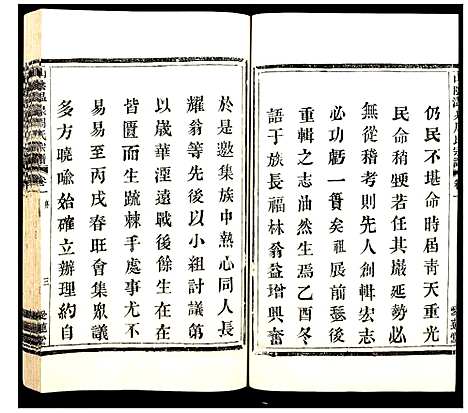 仍民不堪命時局青天重光
民命稍甦若任其延勢必
無從稽考則先人創輯宏志
必功虧一簣矣祖展前瑟後
重輯之志油然生焉乙酉冬
語于族長福林翁益增興奮
於是邀集族中熱心同人長
耀翁等先後以小組討議第
以歲華湮遠戰後餘生在在
皆匱而生疏棘手處事尤不
易易至丙戌春旺會集眾議
多方曉喻始確立辦理約自
卷一
序
三
愛蓮堂